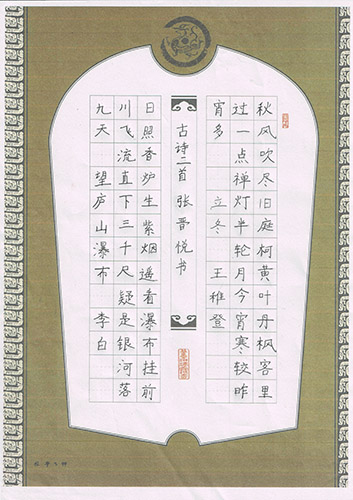 秋风吹尽旧庭柯黄叶丹枫客里
过一点禅灯半轮月今宵寒较昨
宵多 立冬 王稚登
古诗二首 张晋悦书
日照香炉生紫烟遥看瀑布挂前
川飞流直下三千尺疑是银河落
九天 望庐山瀑布 李白